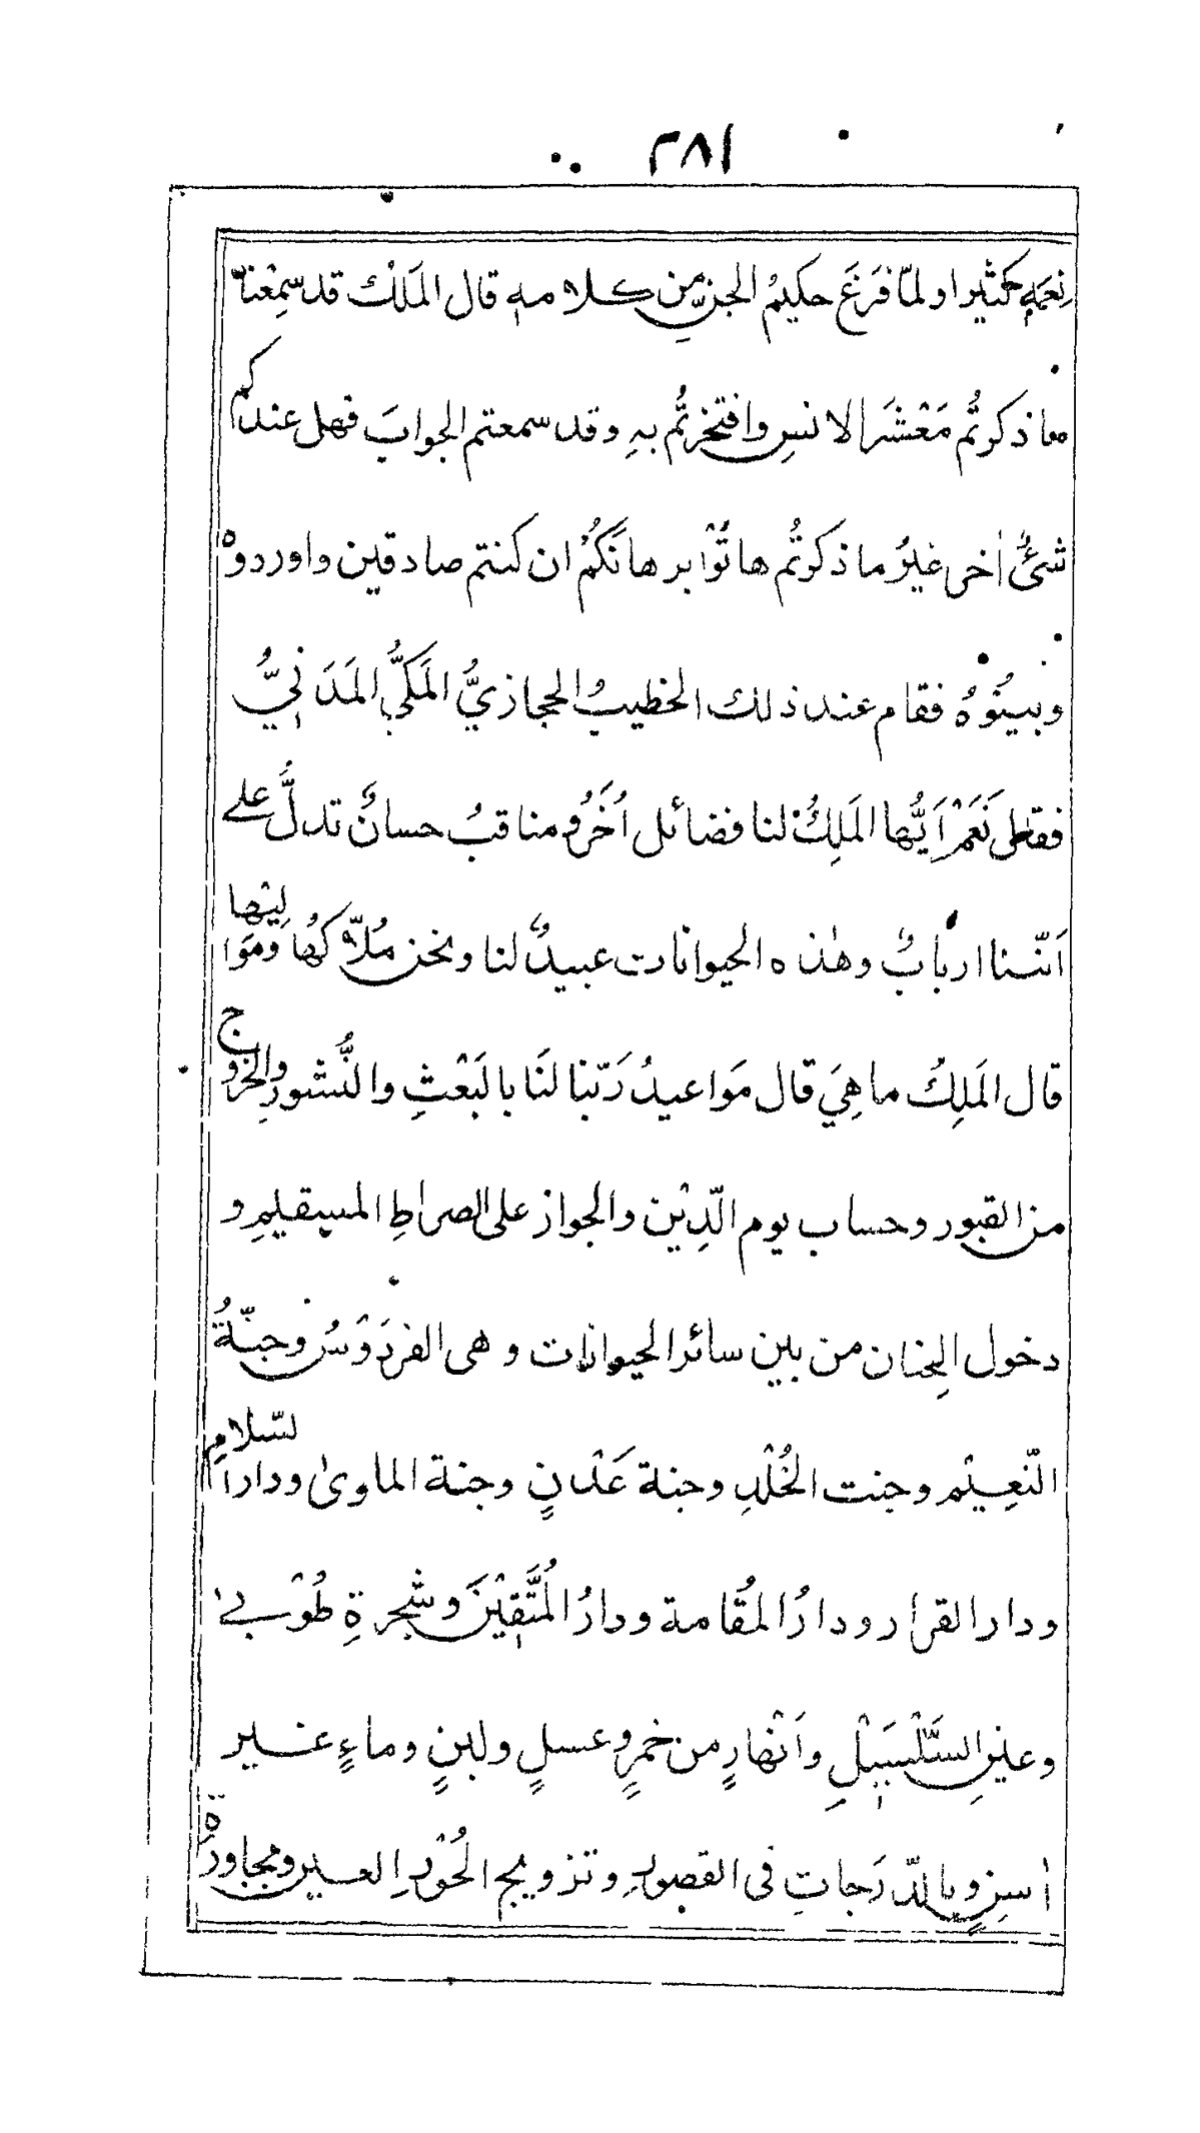 ٢٨١
نِعَمِهٖ كثيرا ولمّا فَرَغَ حكيمُ الجنِّ مِن كلامهٖ قال المَلَك قد سمِعْنا
ما ذكرتُم مَعْشَرَ الانسِ وافتخرتُم بهِ وقد سمعتم الجوابَ فهل عندكم
شئٌ اٰخر غيرُ ما ذكرتُم هاتُوْا برهانَكُمْ ان كنتم صادقين واوردوْه
وبينُوْهُ فقام عند ذلك الخطيبُ الحجازيُّ المَكّيُّ المَدَنِيُّ
فقال نَعَمْ اَيُّها المَلِكُ لنا فضائل اُخَرُ ومناقبُ حسانٌ تدلُّ علے
اَنّنا اربابٌ وهٰذه الحيوانات عبيدٌ لنا ونحن مُلّاكُها ومَوَالِيْها
قال المَلِكُ ما هِيَ قال مَواعيدُ رَبّنا لنَا بالبَعْثِ والنُّشورِ والخروج
من القبور وحساب يوم الدِّيْن والجواز على الصراطِ المستقيمِ و
دخول الجِنان من بين سائر الحيوانات وهى الفردَوْسُ وجنّةُ
النّعِيْم وجنت الخُلْدِ وجنة عَدْنٍ وجنة الماوىٰ ودار السّلامِ
ودار القرار ودارُ المُقَامة ودارُ المُتَّقِيْنَ وشجرةِ طُوْبىٰ
وعينِ السَّلْسَبِيْلِ واَنْهارٍ من خمرٍ وعسلٍ ولبنٍ وماءٍ غير
اٰسنٍ وبالدّرَجاتِ فى القصورِ وتزويج الحُوْرِ العين ومجاورةِ